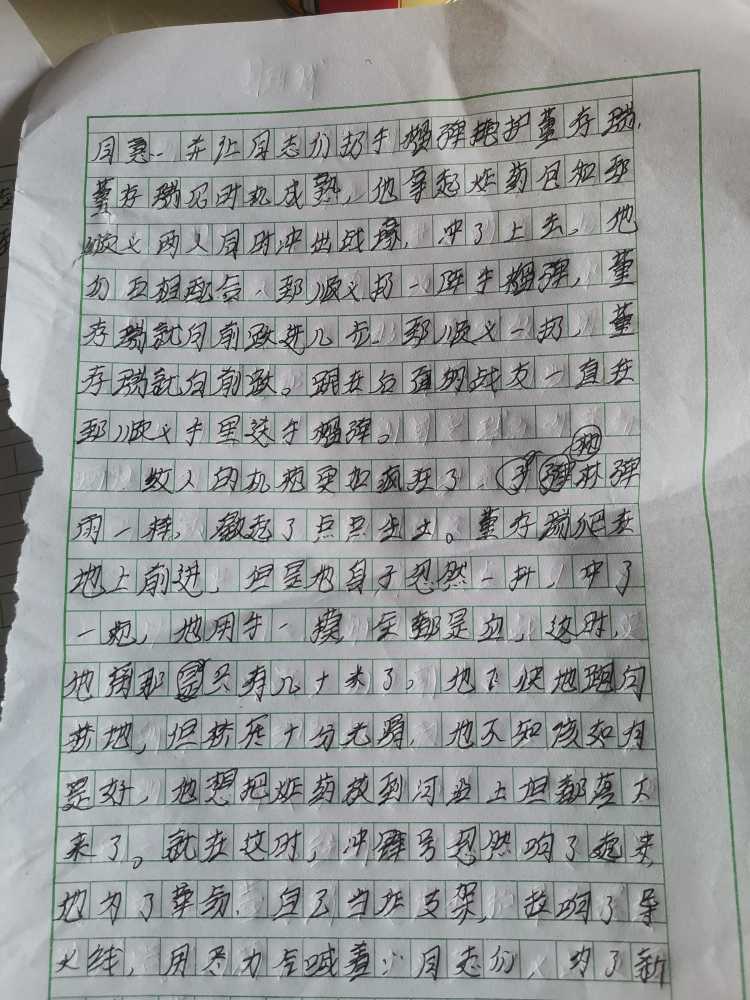 同意。并让同志们扔手榴弹掩护董存瑞,
董存瑞见时机成熟,他拿起炸药包和郅
顺义两人同时冲出战壕,冲了上去。他
们互相配合,郅顺义扔一阵手榴弹,董
存瑞就向前跃进几步。郅顺义一扔,董
存瑞就向前跃。跟在后面的战友一直在
郅顺义手里送手榴弹。
敌人的机枪更加疯狂了,枪林弹
雨一样,激起了点点尘土。董存瑞爬在
地上前进,但是他身子忽然一抖,中了
一炮,他用手一摸全都是血,这时,
他离那只有几十米了。他飞快地跑向
桥地,但桥底十分光滑,他不知该如何
是好,他想把炸药放到河堤上但都落下
来了。就在这时,冲锋号忽然响了起来
他为了革命,自己当作支架,拉响了导
火线,用尽力气喊着:同志们,为了新